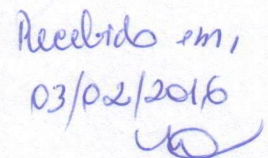 Recebido em,
03/02/2016